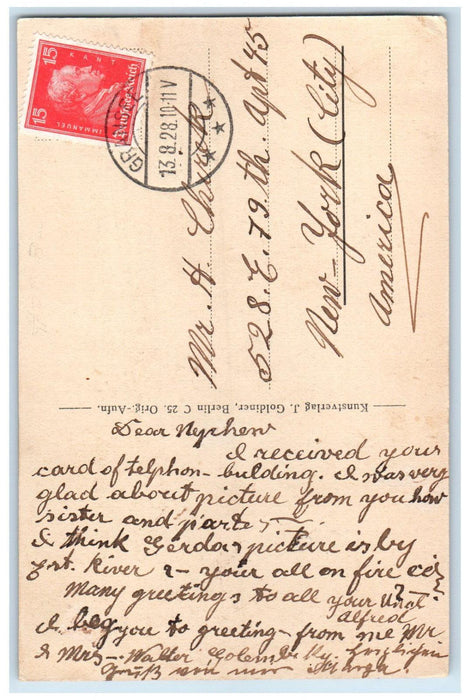 15 15
KANT
IMMANUEL
Deutsches Reich
13.8.28.10-11V
Mr. H.
528. E. 79 th. Apt 45
New-York (City)
America
Kunstverlag J. Goldiner, Berlin C 25. Orig.-Aufn.
Dear Nephew
I received your
card of telphon-bulding. I was very
glad about picture from you how
sister and
I think Gerdas picture is by
Est. River &- your all on fire
Many greetings to all your
Alfred
I beg you to greeting-from me Mr
& Mrs- Walter
Gruß von